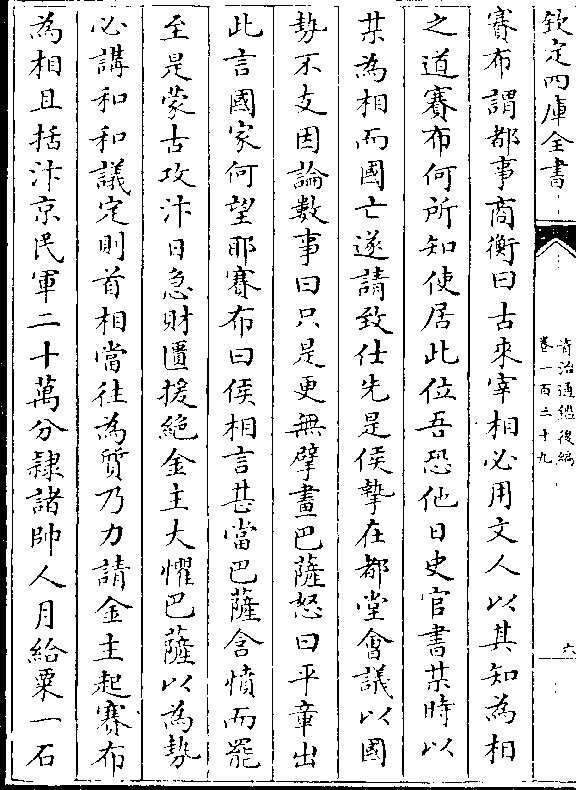 欽定四庫全書
資治通鑑後編
卷一百三十九
六
賽布謂都事商衡曰古來宰相必用文人以其知為相
之道賽布何所知使居此位吾恐他日史官書某時以
某為相而國亡遂請致仕先是侯摯在都堂會議以國
勢不支因論數事曰只是更無擘畫巴薩怒曰平章出
此言國家何望耶賽布曰侯相言甚當巴薩含憤而罷
至是蒙古攻汴日急財匱援絶金主大懼巴薩以為勢
必講和和議定則首相當往為質乃力請金主起賽布
為相且括汴京民軍二十萬分隸諸帥人月給粟一石